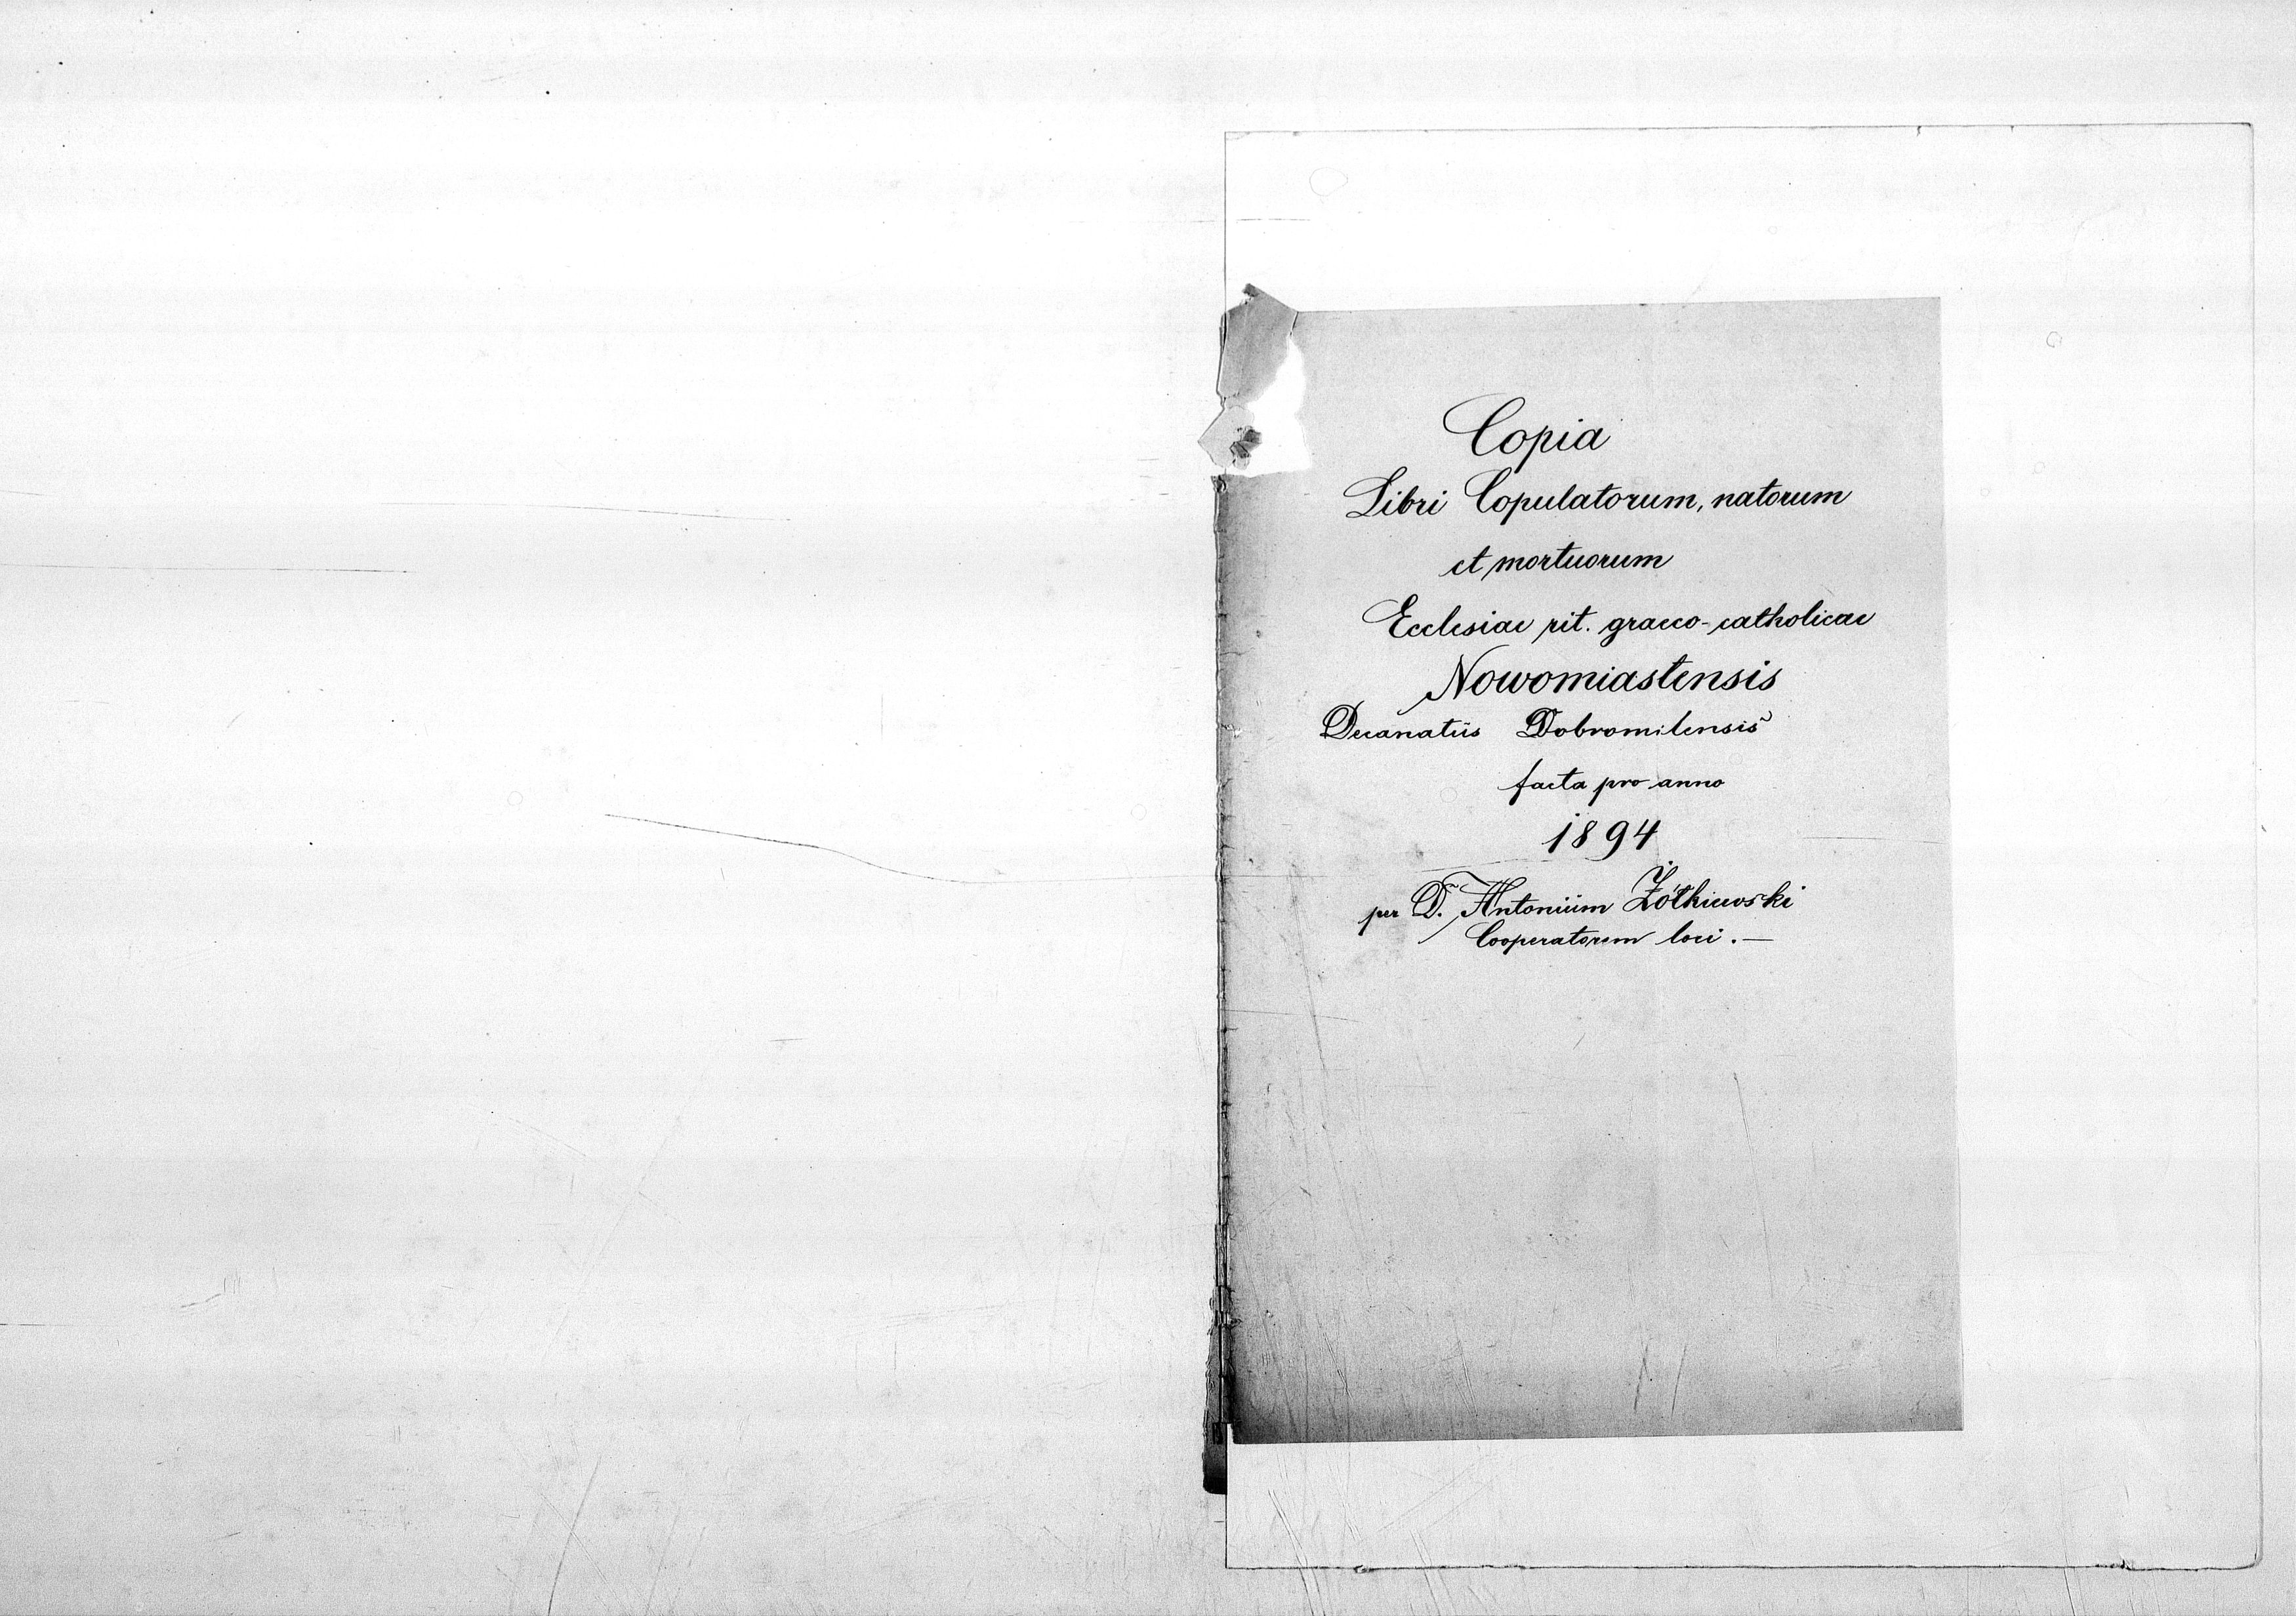 Copia
Libri Copulatorum, natorum
et mortuorum
Ecclesiae rit. graeco-catholicae
Nowomiastensis
Decanatûs Dobromilensis
facta pro anno
1894
per D. Antonium Żółkiewski
Cooperatorem loci. —